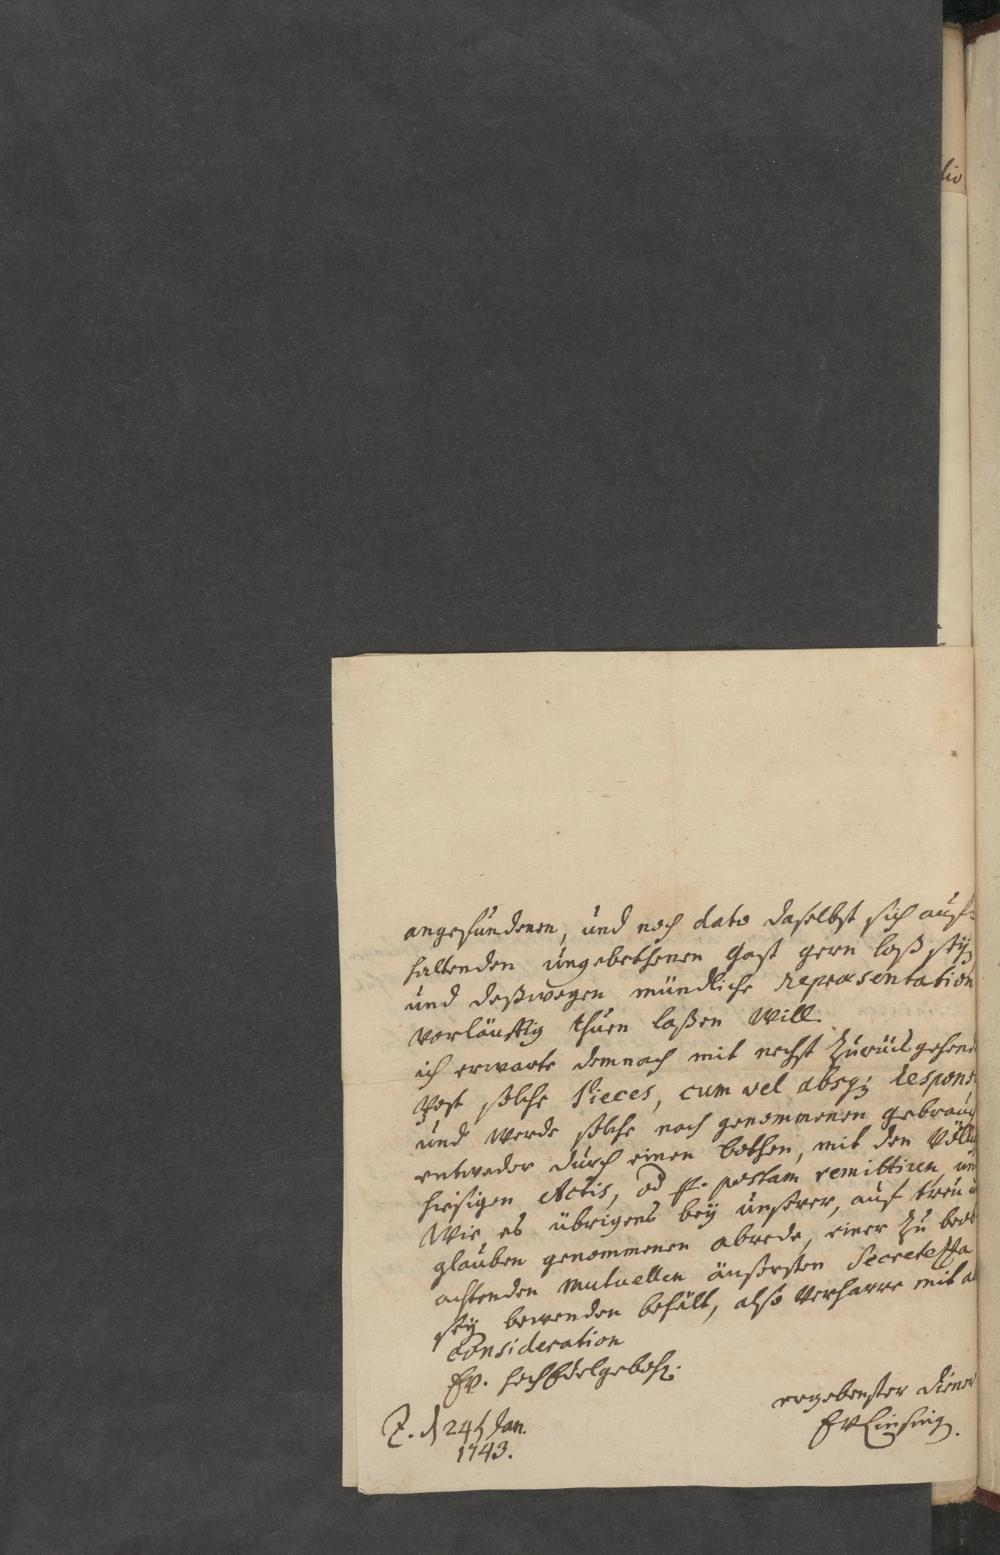 lio
angefundenen, und noch dato daselbst sich auf-
haltenden ungebethenen Gast gern loß seyn
und deßwegen mündliche Repraesentation
vorläuffig thuen laßen will.
ich erwarte demnach mit nechst zurückgehend
Post solche Pieces, cum vel absq; respons
und werde solche nach genommenen gebrauch
entweder durch einen bothen, mit den völli
hiesigen Actis, od pr. postam remittiren, un
Wie es übrigens bey unserer, auf treu u
glauben genommenen abrede, einer zu beob
achtenden mutuellen äusersten Secretesse
bewenden behält, also verharre mit al
consideration
Ew. HochEdelgebohr.
ergebenster Diener
Z. d 24t Jan.
1743.